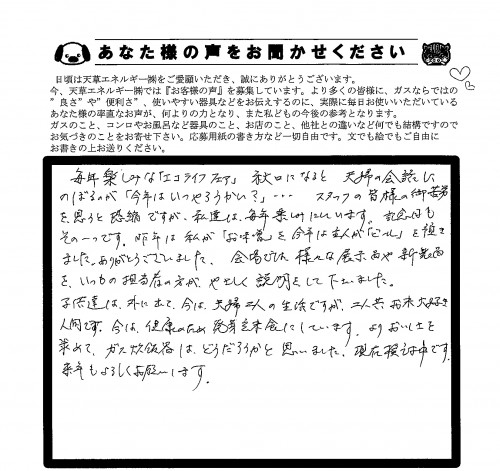 あなた様の声をお聞かせください
日頃は天草エネルギー㈱をご愛顧いただき、誠にありがとうございます。
今、天草エネルギー㈱では『お客様の声』を募集しています。より多くの皆様に、ガスならではの
”良さ”や”便利さ”、使いやすい器具などをお伝えするのに、実際に毎日お使いいただいている
あなた様の率直なお声が、何よりの力となり、また私どもの今後の参考となります。
ガスのこと、コンロやお風呂など器具のこと、お店のこと、他社との違いなど何でも結構ですので
お気づきのことをお寄せ下さい。応募用紙の書き方など一切自由です。文でも絵でもご自由に
お書きの上お送りください。
毎年楽しみな「エコライフフェア」秋口になると 夫婦の会話に
のぼるのが「今年はいつやろうかい？」・・・ スタッフの皆様の御苦労
を思うと恐縮ですが、私達は、毎年楽しみにしています。記念日も
その一つです。昨年は 私が「お味噌」を 今年は主人が「ビール」を 頂き
ました。ありがとうございました。会場では、様々な展示品や 新商品
を、いつもの担当者の方が、やさしく 説明をして下さいました。
子供達は、外に出て、今は、夫婦二人の生活ですが、二人共 お米大好き
人間です。今は、健康のため 発芽玄米食にしています。よりおいしさを
求めて、ガス炊飯器は、どうだろうかと 思いました。現在検討中です。
来年もよろしくお願いします。